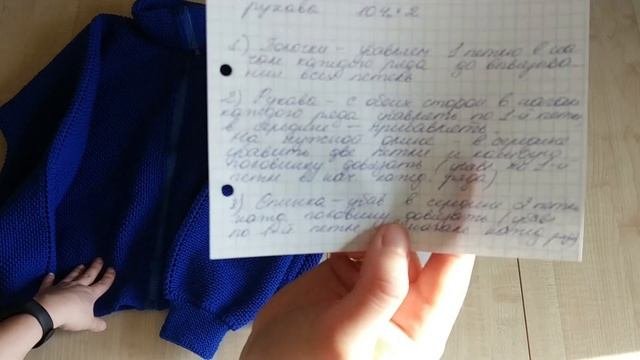 рукава 104 х 2
1) Полочки - убавляем 1 петлю в на-
чале каждого ряда до вывязыва-
ния всех петель
2) Рукава - с обеих сторон в начале
каждого ряда убавлять по 1-й петле
в середине - прибавлять.
На нужной длине - в середине
убавить две петли и каждую
половинку довязать (убав по 1-й
петле в нач. кажд. ряда)
3) Спинка - убав в середине 2 петли
кажд половинку довязать (убав
по 1й петле в начале кажд ряда